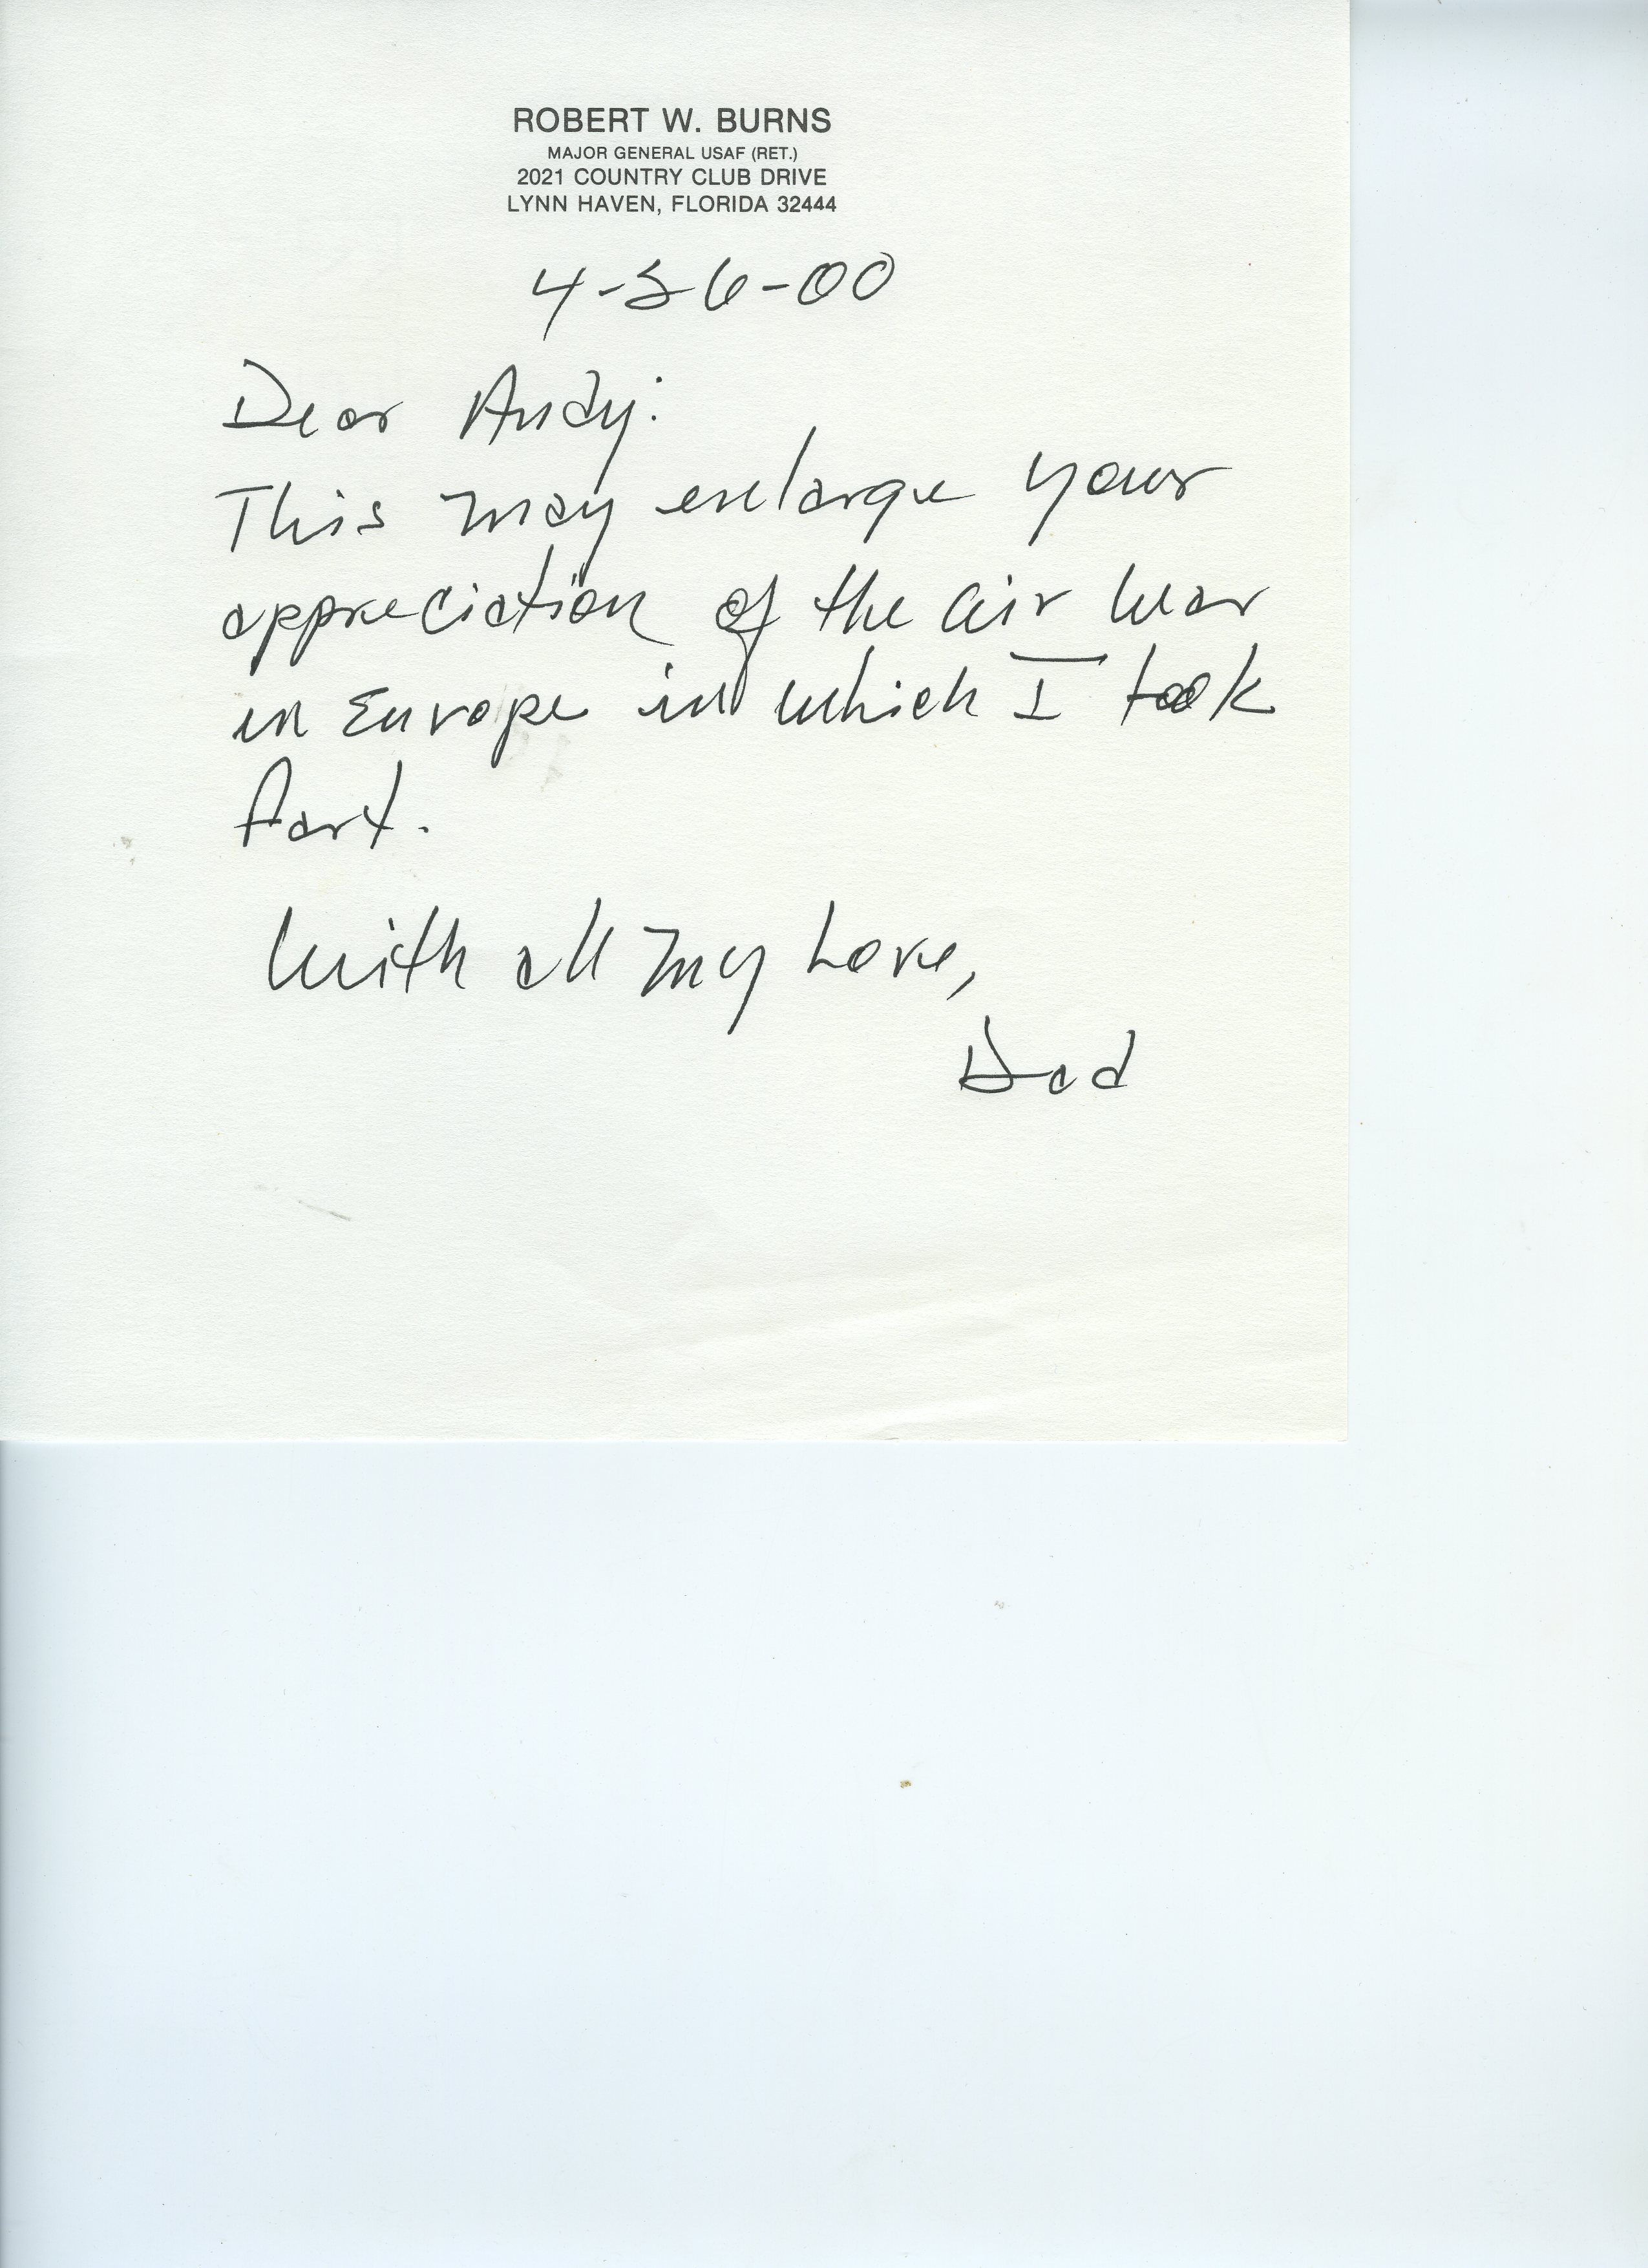 ROBERT W. BURNS
MAJOR GENERAL USAF (RET.)
2021 COUNTRY CLUB DRIVE
LYNN HAVEN, FLORIDA 32444
4-26-00
Dear Andy:
This may enlarge your
appreciation of the air war
in Europe in which I took
part.
With all my Love,
Dad